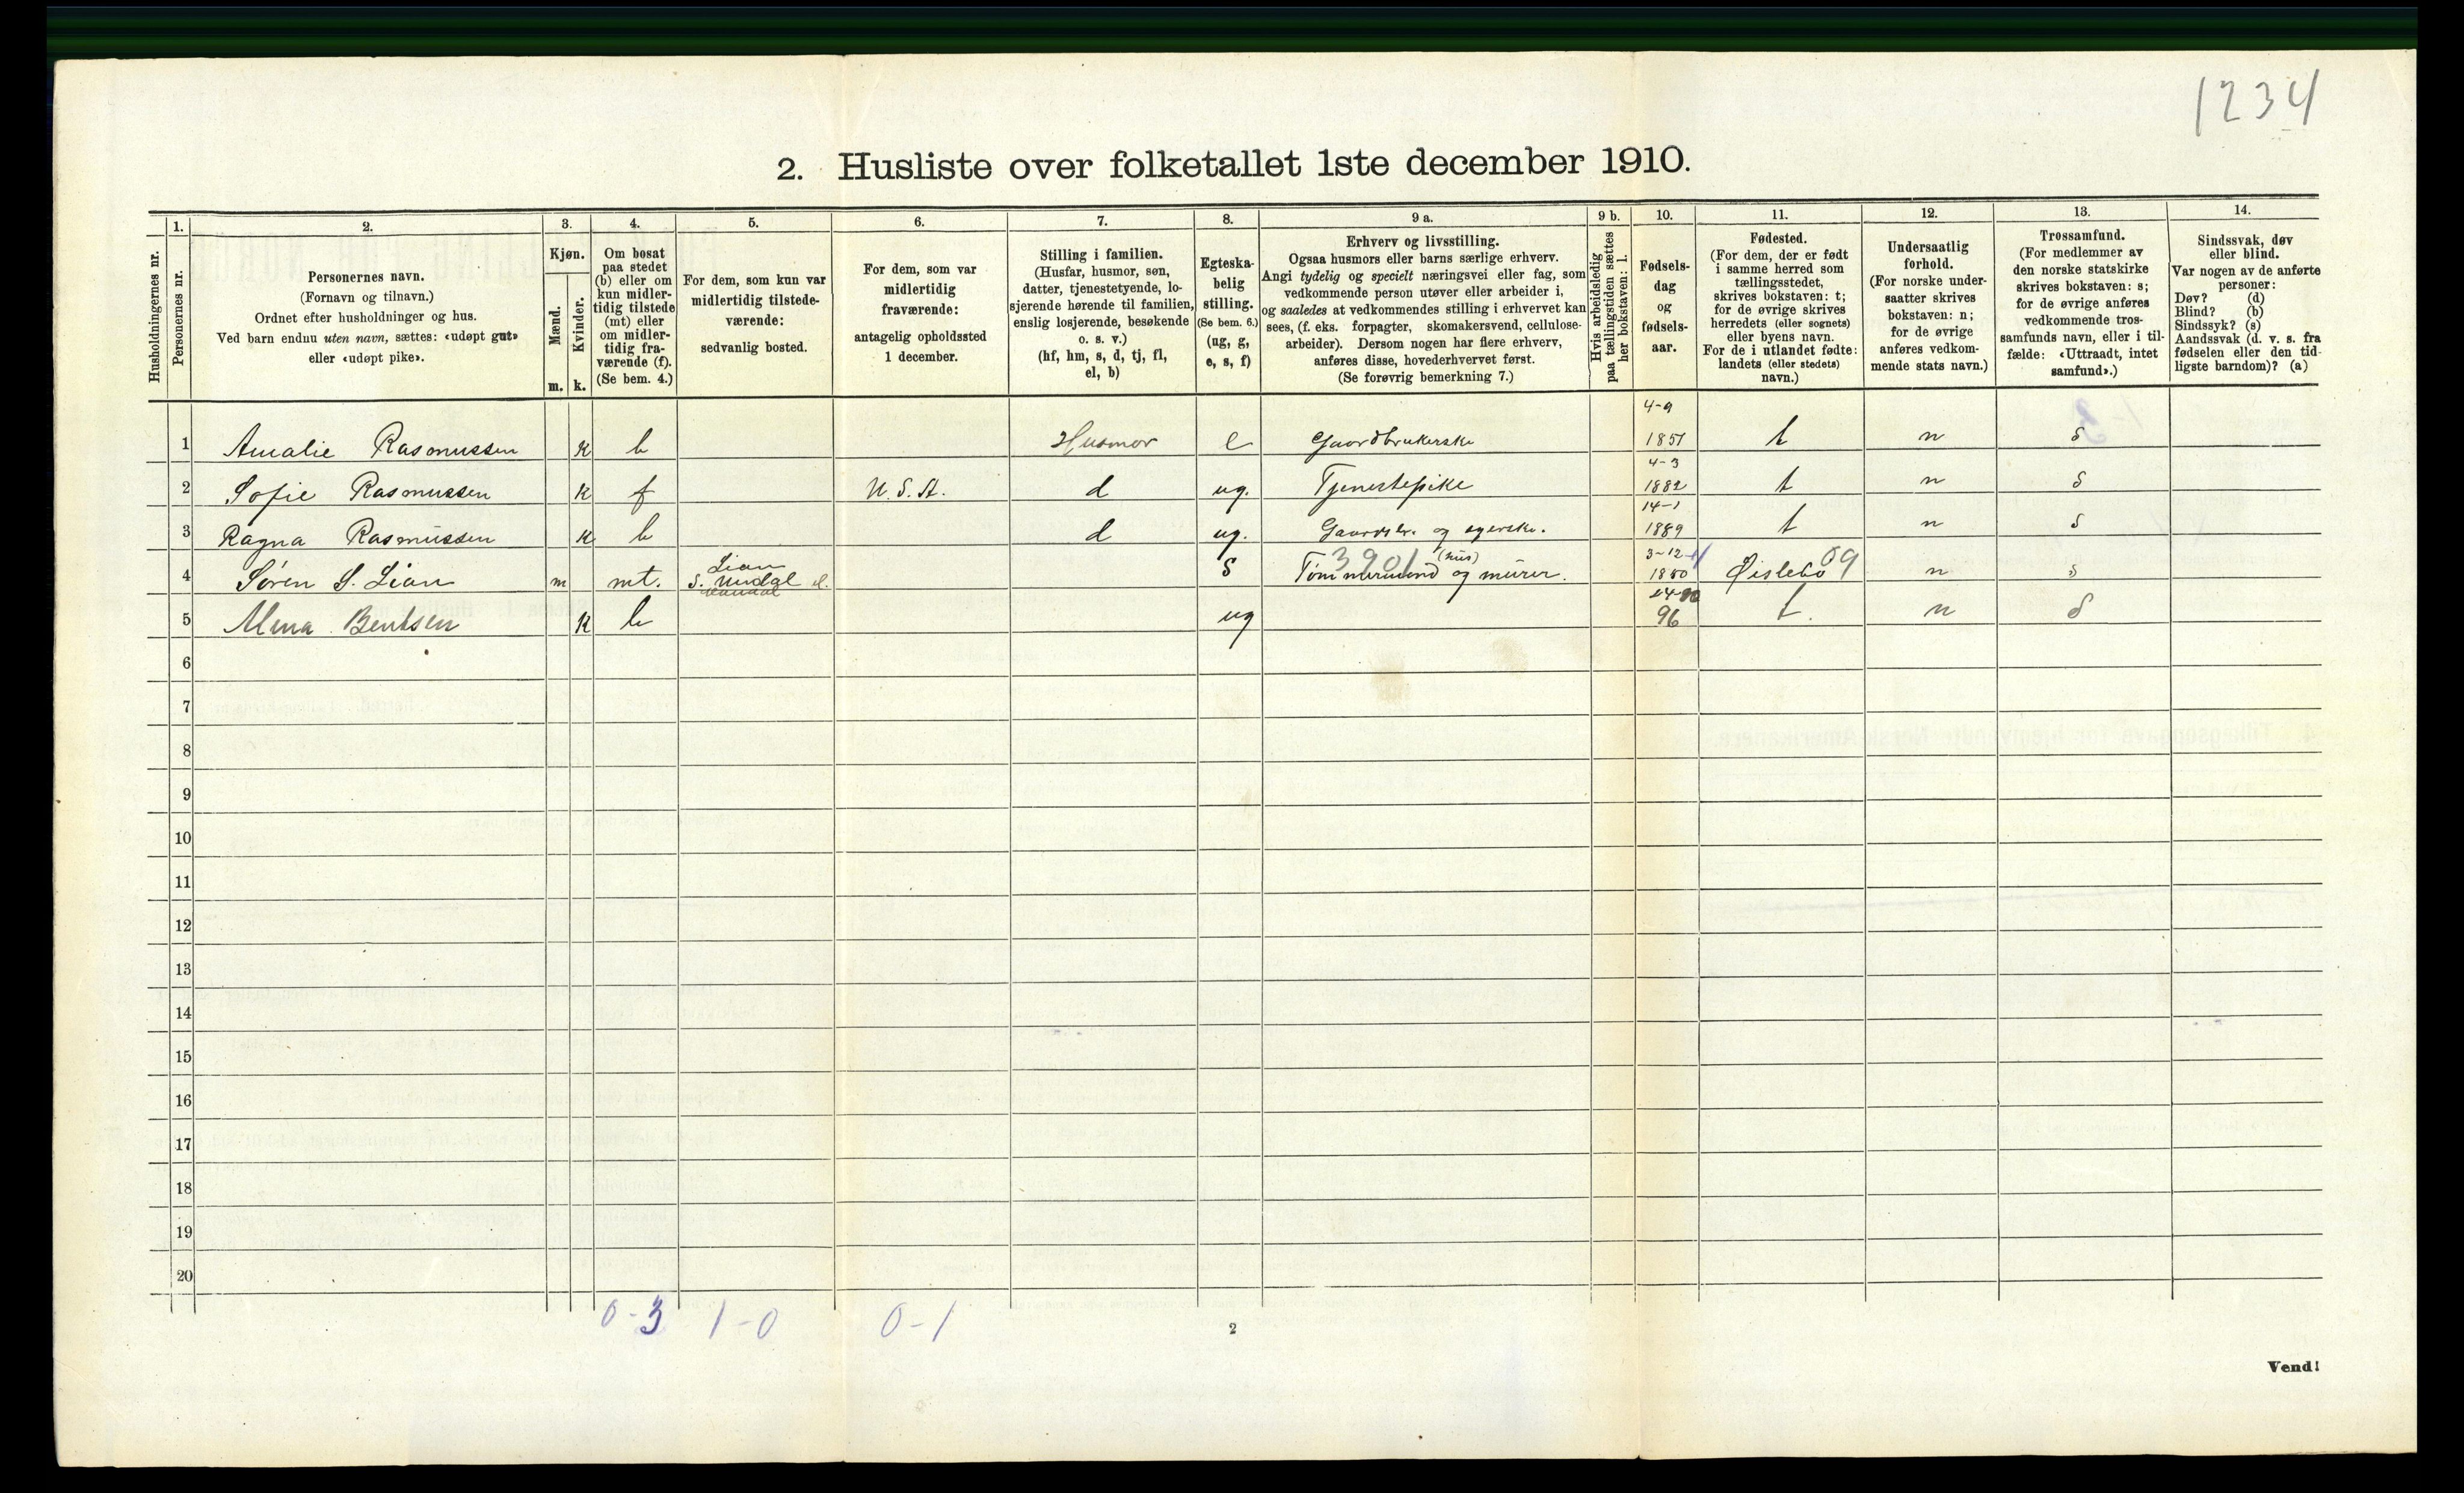 1234
2. Husliste over folketallet 1ste december 1910.
Husholdningernes nr.
1.
Personernes nr.
2.
Personernes navn.
(Fornavn og tilnavn.)
Ordnet efter husholdninger og hus.
Ved barn endnu uten navn, sættes: «udøpt gut»
eller «udøpt pike».
3.
Kjøn.
Mænd.
Kvinder.
m. k.
4.
Om bosat
paa stedet
(b) eller om
kun midler-
tidig tilstede
(mt) eller
om midler-
tidig fra-
værende (f).
(Se bem. 4.)
5.
For dem, som kun var
midlertidig tilstede-
værende:
sedvanlig bosted.
6.
For dem, som var
midlertidig
fraværende:
antagelig opholdssted
1 december.
7.
Stilling i familien.
(Husfar, husmor, søn,
datter, tjenestetyende, lo-
sjerende hørende til familien,
enslig losjerende, besøkende
o. s. v.)
(hf, hm, s, d, tj, fl,
el, b)
8.
Egteska-
belig
stilling.
(Se bem. 6.)
(ug, g,
e, s, f)
9 a.
Erhverv og livsstilling.
Ogsaa husmors eller barns særlige erhverv.
Angi tydelig og specielt næringsvei eller fag, som
vedkommende person utøver eller arbeider i,
og saaledes at vedkommendes stilling i erhvervet kan
sees, (f. eks. forpagter, skomakersvend, cellulose-
arbeider). Dersom nogen har flere erhverv,
anføres disse, hovederhvervet først.
(Se forøvrig bemerkning 7.)
9 b.
Hvis arbeidsledig
paa tællingstiden sættes
her bokstaven: l.
10.
Fødsels-
dag
og
fødsels-
aar.
11.
Fødested.
(For dem, der er født
i samme herred som
tællingsstedet,
skrives bokstaven: t;
for de øvrige skrives
herredets (eller sognets)
eller byens navn.
For de i utlandet fødte:
landets (eller stedets)
navn.)
12.
Undersaatlig
forhold.
(For norske under-
saatter skrives
bokstaven: n;
for de øvrige
anføres vedkom-
mende stats navn.)
13.
Trossamfund.
(For medlemmer av
den norske statskirke
skrives bokstaven: s;
for de øvrige anføres
vedkommende tros-
samfunds navn, eller i til-
fælde: «Uttraadt, intet
samfund».)
14.
Sindssvak, døv
eller blind.
Var nogen av de anførte
personer:
Døv? (d)
Blind? (b)
Sindssyk? (s)
Aandssvak (d. v. s. fra
fødselen eller den tid-
ligste barndom)? (a)
4-9
1 Amalie Rasmussen K b Husmor e Gaardbrukerske 1851 t n s
4-3
2 Sofie Rasmussen K f U. S. A. d ug. Tjenestepike 1882 t n s
14-1
3 Ragna Rasmussen K b d ug. Gaardsbr. og syerske. 1889 t n s
Lian 3901 (hus) 3-12
4 Søren S. Lian m mt. S. Undal S Tømmermand og murer. 1850 Øislebø 09 n s
Mandal
5 Alma Bentsen K b ug 96 t. n s
6
7
8
9
10
11
12
13
14
15
16
17
18
19
20
0-3 1-0 0-1
2
Vend!